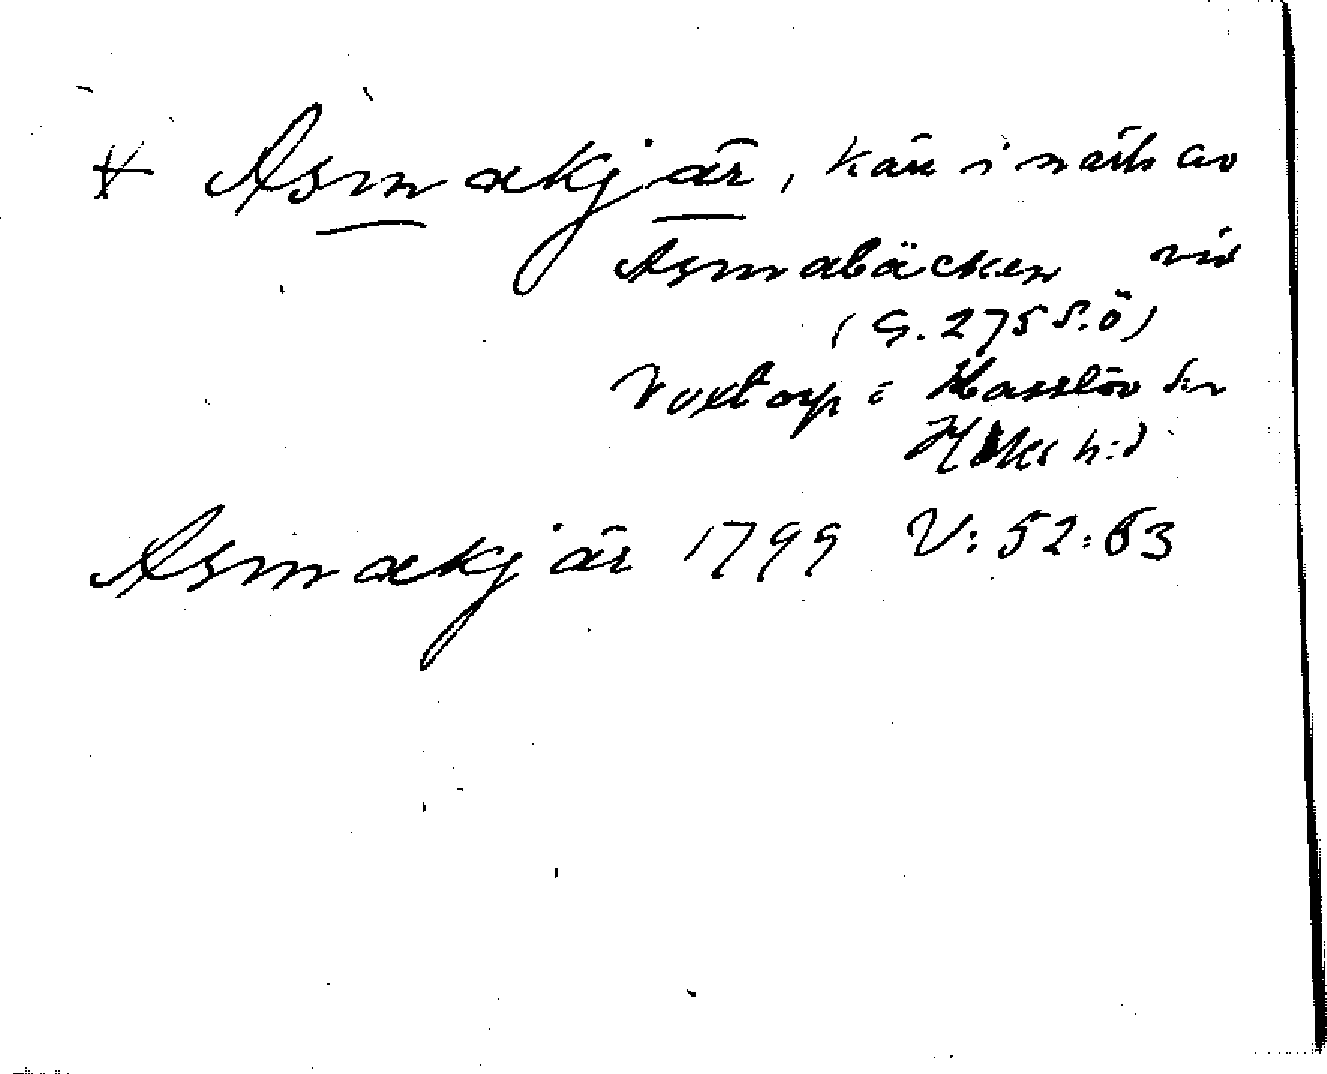 * Asmakjär, kärr i närh av
Asmabäcken vid
(G. 2755.ö)
Vuxtorp i Hasslöv sn
Höks h:d
Asmakjär 1799 V:52:63